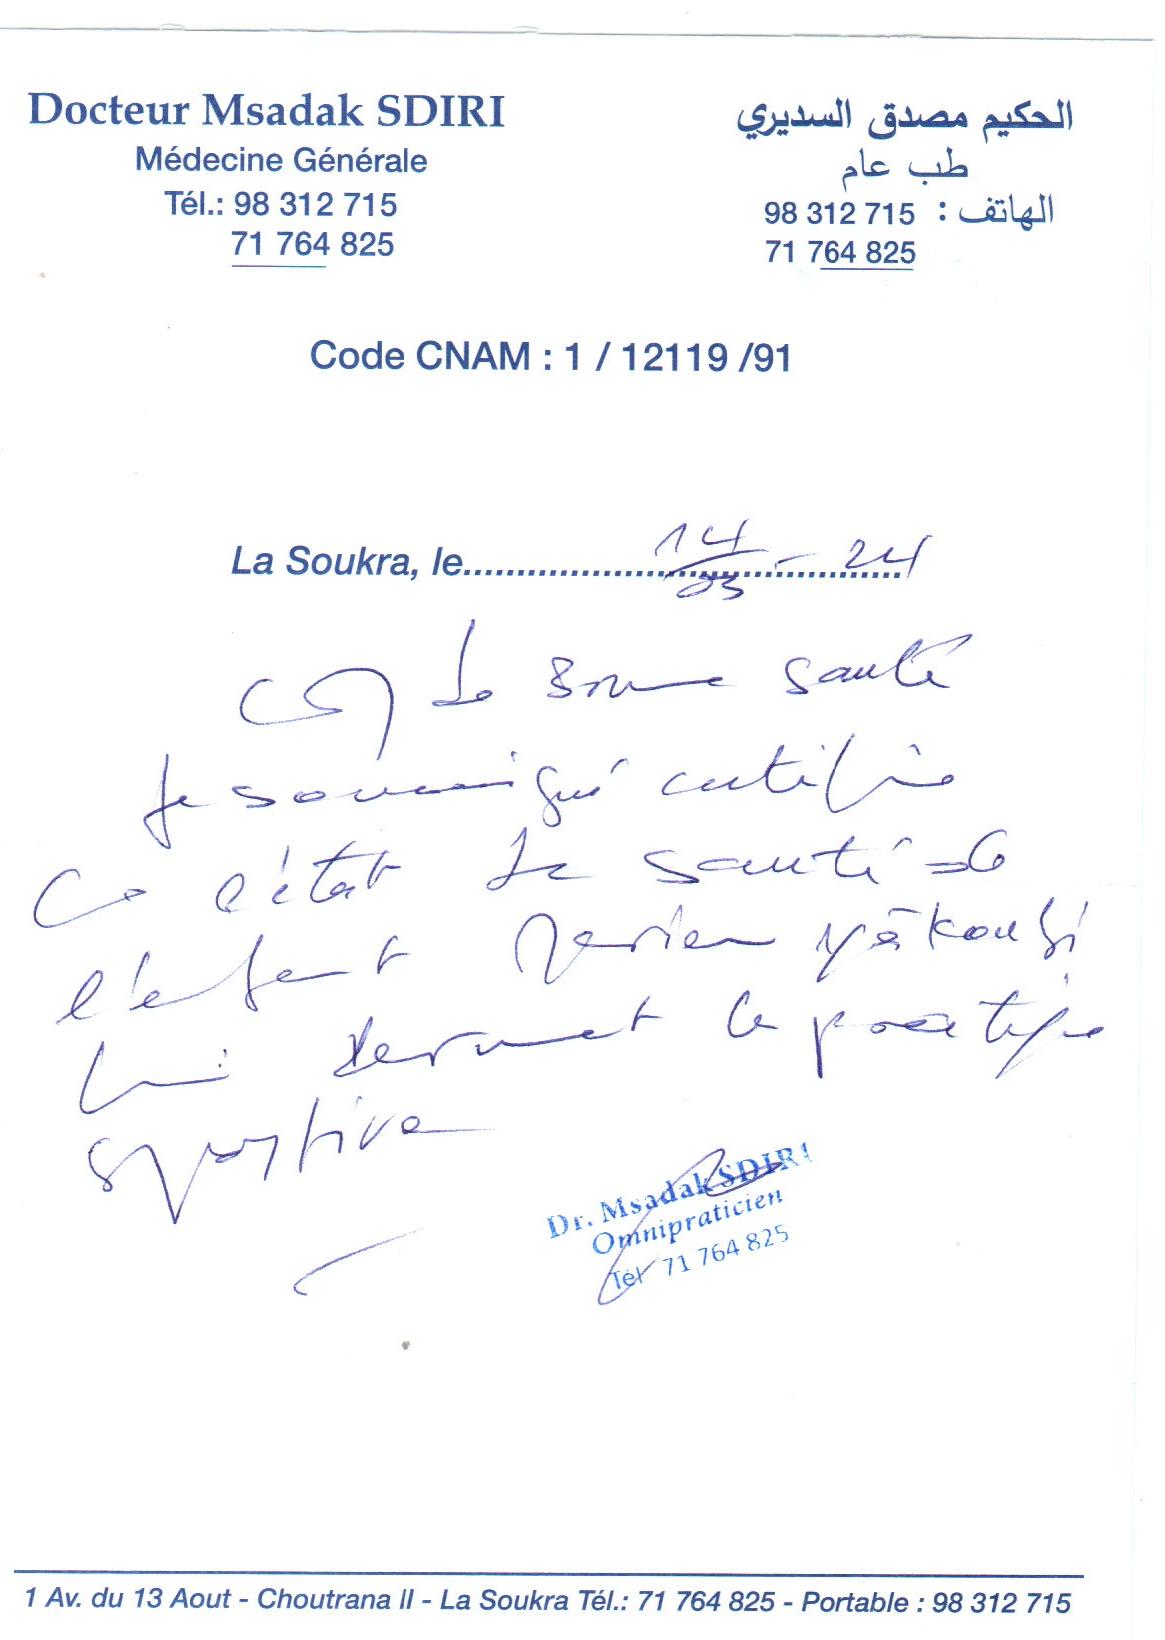 Docteur Msadak SDIRI
Médecine Générale
Tél.: 98 312 715
71 764 825
الحكيم مصدق السديري
طب عام
الهاتف : 98 312 715
71 764 825
Code CNAM : 1 / 12119 /91
La Soukra, le 14/03 - 24
de Bonne santé
Je soussigné certifie
l'état de santé de
l'enfant Yâkoubi
lui permet la pratique
sportive
Dr. Msadak SDIRI
Omnipraticien
Tél 71 764 825
1 Av. du 13 Aout - Choutrana II - La Soukra Tél.: 71 764 825 - Portable : 98 312 715